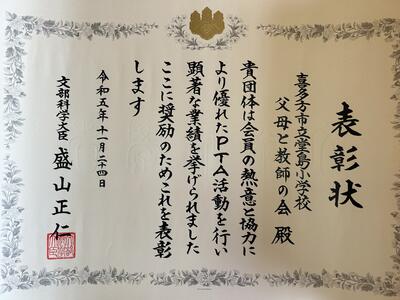 表彰状
喜多方市立堂島小学校
父母と教師の会 殿
貴団体は会員の熱意と協力に
より優れたPTA活動を行い
顕著な業績を挙げられました
ここに奨励のためこれを表彰
します
令和五年十一月二十四日
文部科学大臣 盛山正仁